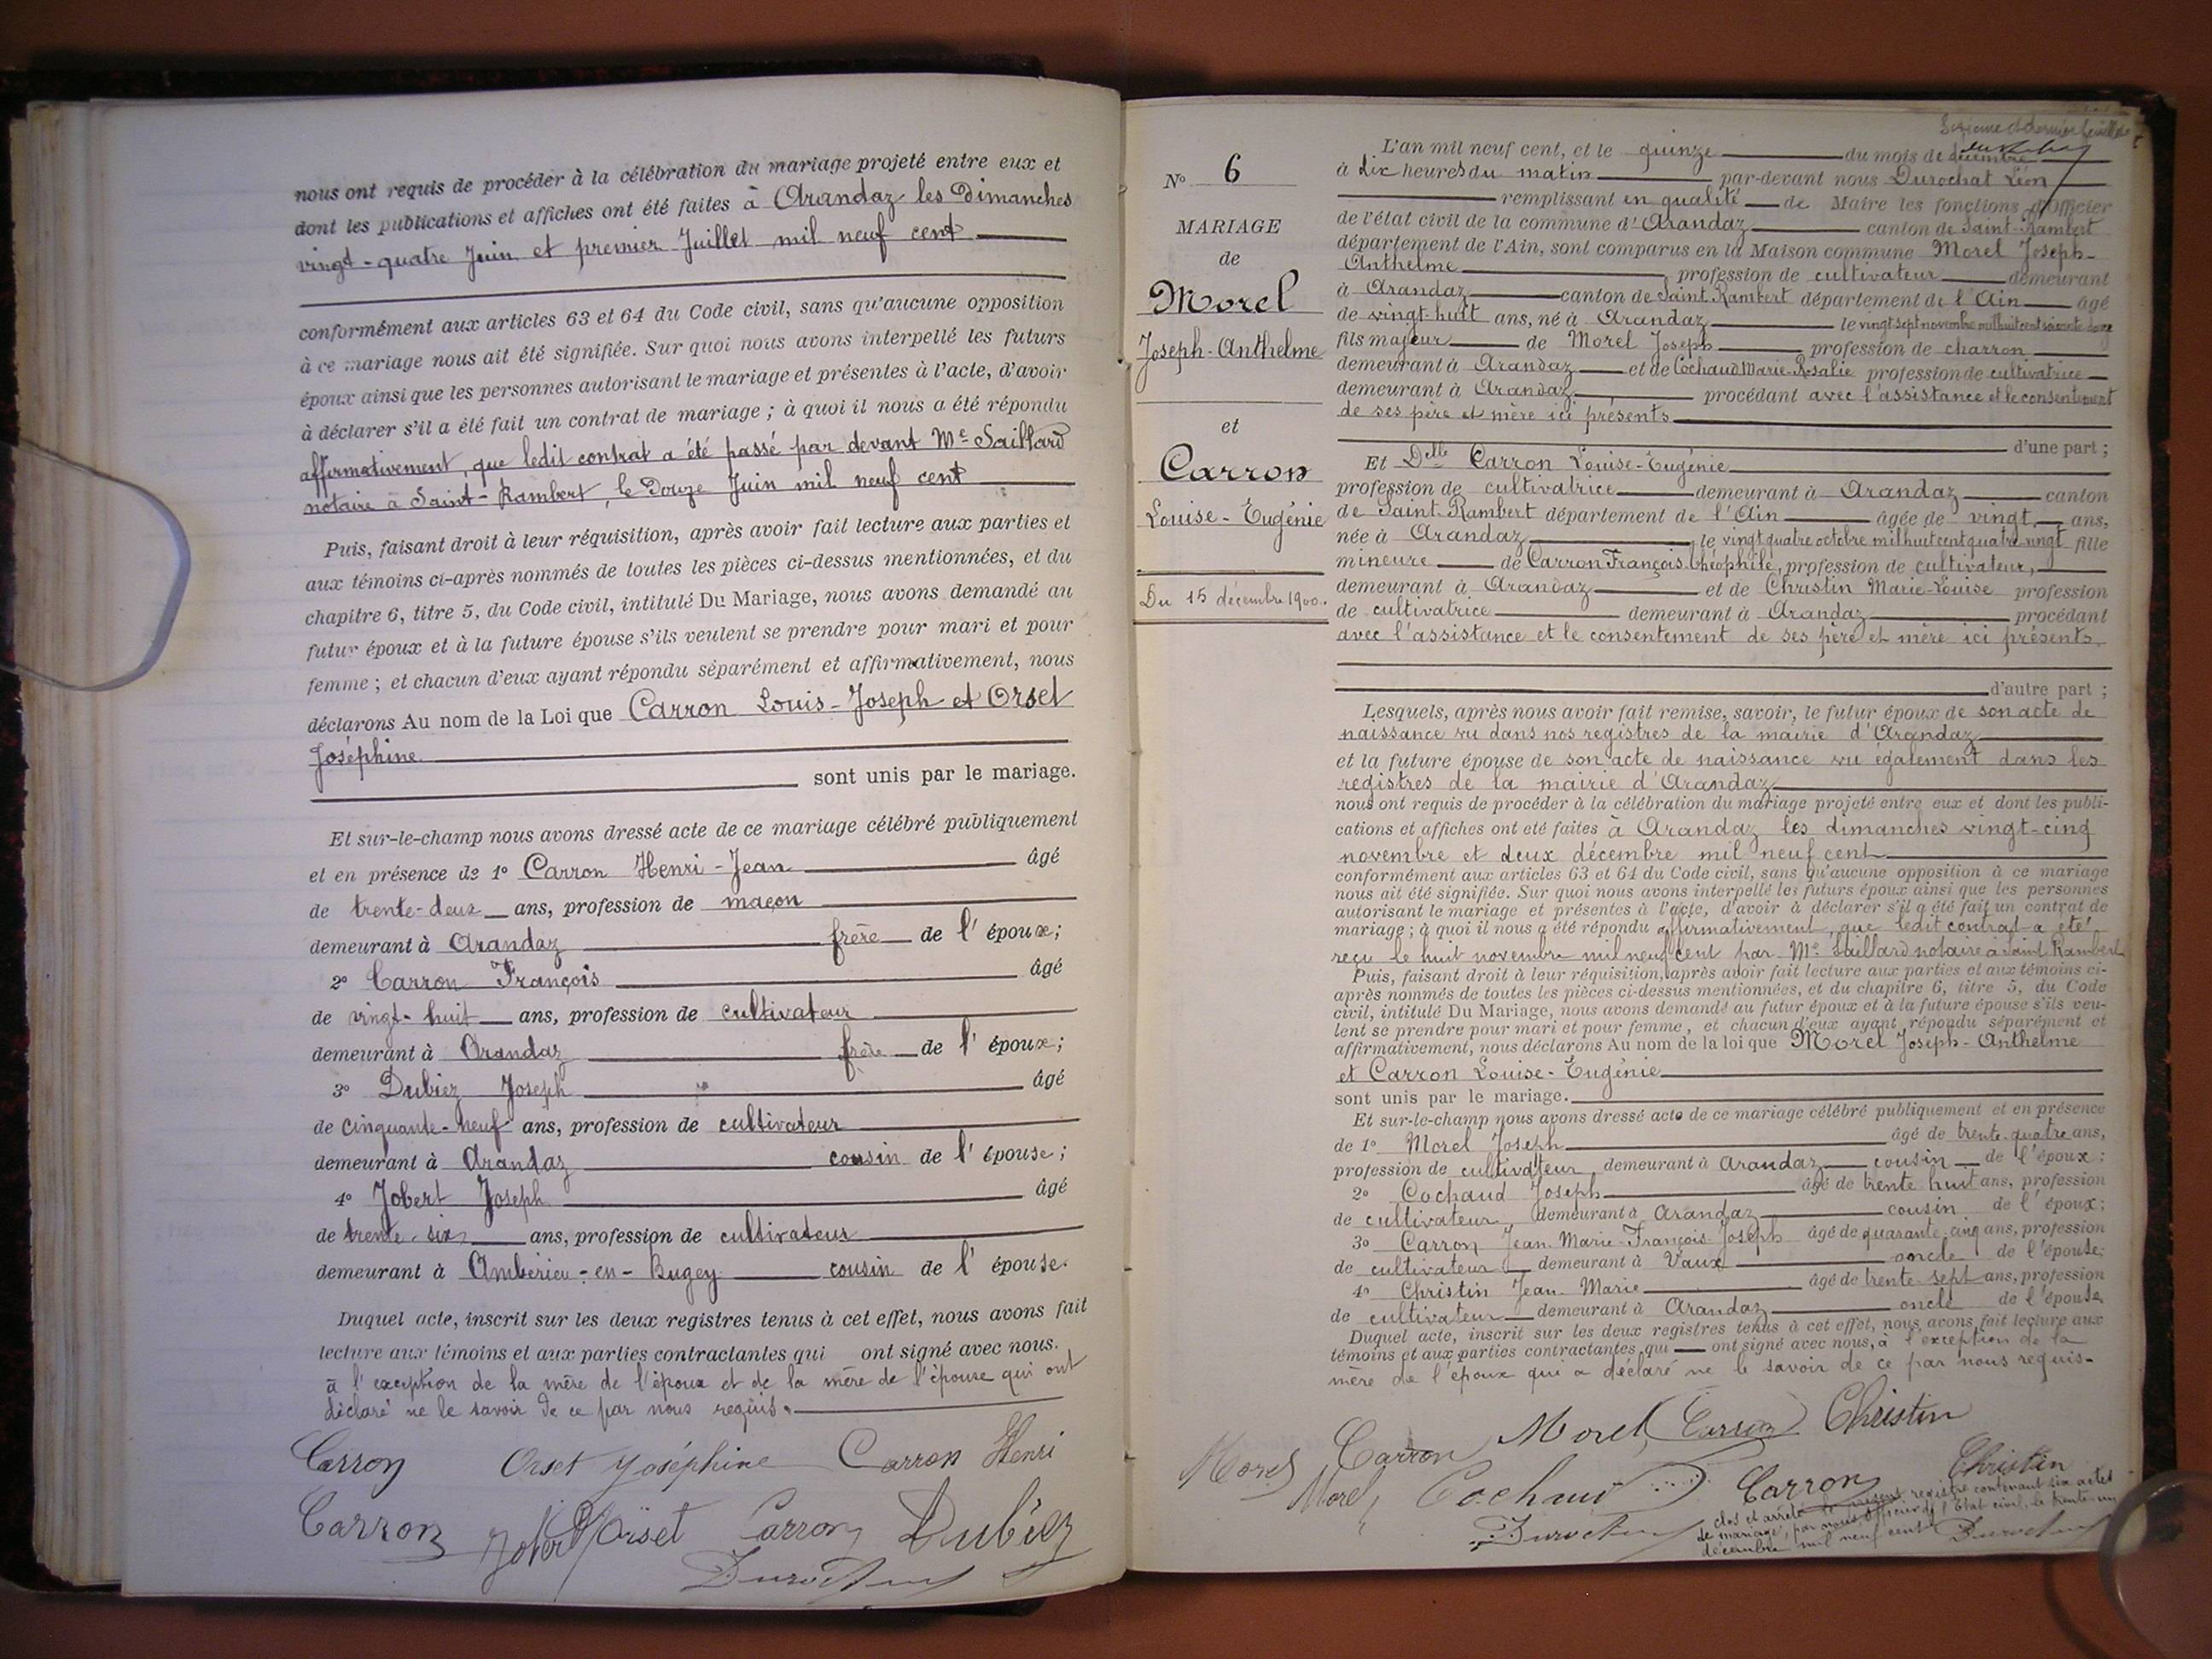 nous ont requis de procéder à la célébration du mariage projeté entre eux et
dont les publications et affiches ont été faites à Arandaz les Dimanches
vingt-quatre Juin et premier Juillet mil neuf cent
conformément aux articles 63 et 64 du Code civil, sans qu'aucune opposition
à ce mariage nous ait été signifiée. Sur quoi nous avons interpellé les futurs
époux ainsi que les personnes autorisant le mariage et présentes à l'acte, d'avoir
à déclarer s'il a été fait un contrat de mariage ; à quoi il nous a été répondu
affirmativement, que ledit contrat a été passé par devant Me Saillard
notaire à Saint-Rambert, le Douze Juin mil neuf cent
Puis, faisant droit à leur réquisition, après avoir fait lecture aux parties et
aux témoins ci-après nommés de toutes les pièces ci-dessus mentionnées, et du
chapitre 6, titre 5, du Code civil, intitulé Du Mariage, nous avons demandé au
futur époux et à la future épouse s'ils veulent se prendre pour mari et pour
femme ; et chacun d'eux ayant répondu séparément et affirmativement, nous
déclarons Au nom de la Loi que Carron Louis-Joseph et Orset
Joséphine
sont unis par le mariage.
Et sur-le-champ nous avons dressé acte de ce mariage célébré publiquement
et en présence de 1° Carron Henri-Jean âgé
de trente-deux ans, profession de maçon
demeurant à Arandaz frère de l'époux;
2° Carron François âgé
de vingt-huit ans, profession de cultivateur
demeurant à Arandaz frère de l'époux;
3° Dubiez Joseph âgé
de cinquante-neuf ans, profession de cultivateur
demeurant à Arandaz cousin de l'épouse;
4° Jobert Joseph âgé
de trente-six ans, profession de cultivateur
demeurant à Ambérieu-en-Bugey cousin de l'épouse.
Duquel acte, inscrit sur les deux registres tenus à cet effet, nous avons fait
lecture aux témoins et aux parties contractantes qui ont signé avec nous.
à l'exception de la mère de l'époux et de la mère de l'épouse qui ont
déclaré ne le savoir de ce par nous requis.
Carron Orset Joséphine Carron Henri
Carron Jobert Orset Carron Dubiez
Durochat
N° 6
MARIAGE
de
Morel
Joseph-Anthelme
et
Carron
Louise-Eugénie
Du 15 décembre 1900.
Sixième et dernier feuillet
L'an mil neuf cent, et le quinze du mois de décembre
à dix heures du matin par-devant nous Durochat Léon
remplissant en qualité de Maire les fonctions d'Officier
de l'état civil de la commune d'Arandaz canton de Saint-Rambert
département de l'Ain, sont comparus en la Maison commune Morel Joseph-
Anthelme profession de cultivateur demeurant
à Arandaz canton de Saint Rambert département de l'Ain âgé
de vingt-huit ans, né à Arandaz le vingt sept novembre mil huit cent soixante douze
fils majeur de Morel Joseph profession de charron
demeurant à Arandaz et de Cochaud Marie-Rosalie profession de cultivatrice
demeurant à Arandaz procédant avec l'assistance et le consentement
de ses père et mère ici présents
d'une part ;
Et Delle Carron Louise-Eugénie
profession de cultivatrice demeurant à Arandaz canton
de Saint-Rambert département de l'Ain âgée de vingt ans,
née à Arandaz le vingt quatre octobre mil huit cent quatre vingt fille
mineure de Carron François-Théophile, profession de cultivateur,
demeurant à Arandaz et de Christin Marie-Louise profession
de cultivatrice demeurant à Arandaz procédant
avec l'assistance et le consentement de ses père et mère ici présents
d'autre part ;
Lesquels, après nous avoir fait remise, savoir, le futur époux de son acte de
naissance vu dans nos registres de la mairie d'Arandaz
et la future épouse de son acte de naissance vu également dans les
registres de la mairie d'Arandaz
nous ont requis de procéder à la célébration du mariage projeté entre eux et dont les publi-
cations et affiches ont été faites à Arandaz les dimanches vingt-cinq
novembre et deux décembre mil neuf cent
conformément aux articles 63 et 64 du Code civil, sans qu'aucune opposition à ce mariage
nous ait été signifiée. Sur quoi nous avons interpellé les futurs époux ainsi que les personnes
autorisant le mariage et présentes à l'acte, d'avoir à déclarer s'il a été fait un contrat de
mariage ; à quoi il nous a été répondu affirmativement, que ledit contrat a été
reçu le huit novembre mil neuf cent par Me Saillard notaire à Saint Rambert
Puis, faisant droit à leur réquisition, après avoir fait lecture aux parties et aux témoins ci-
après nommés de toutes les pièces ci-dessus mentionnées, et du chapitre 6, titre 5, du Code
civil, intitulé Du Mariage, nous avons demandé au futur époux et à la future épouse s'ils veu-
lent se prendre pour mari et pour femme, et chacun d'eux ayant répondu séparément et
affirmativement, nous déclarons Au nom de la loi que Morel Joseph-Anthelme
et Carron Louise-Eugénie
sont unis par le mariage.
Et sur-le-champ nous avons dressé acte de ce mariage célébré publiquement et en présence
de 1° Morel Joseph âgé de trente-quatre ans,
profession de cultivateur demeurant à Arandaz cousin de l'époux ;
2° Cochaud Joseph âgé de trente huit ans, profession
de cultivateur, demeurant à Arandaz cousin de l'époux;
3° Carron Jean-Marie-François-Joseph âgé de quarante-cinq ans, profession
de cultivateur demeurant à Vaux oncle de l'épouse;
4° Christin Jean-Marie âgé de trente-sept ans, profession
de cultivateur demeurant à Arandaz oncle de l'épouse
Duquel acte, inscrit sur les deux registres tenus à cet effet, nous avons fait lecture aux
témoins et aux parties contractantes qui ont signé avec nous, à l'exception de la
mère de l'époux qui a déclaré ne le savoir de ce par nous requis.
Morel Carron Morel Carron Christin
Morel Cochaud Carron Christin
Durochat
clos et arrêté le présent registre contenant six actes
de mariage, par nous officier de l'Etat civil, le trente-un
décembre mil neuf cent Durochat